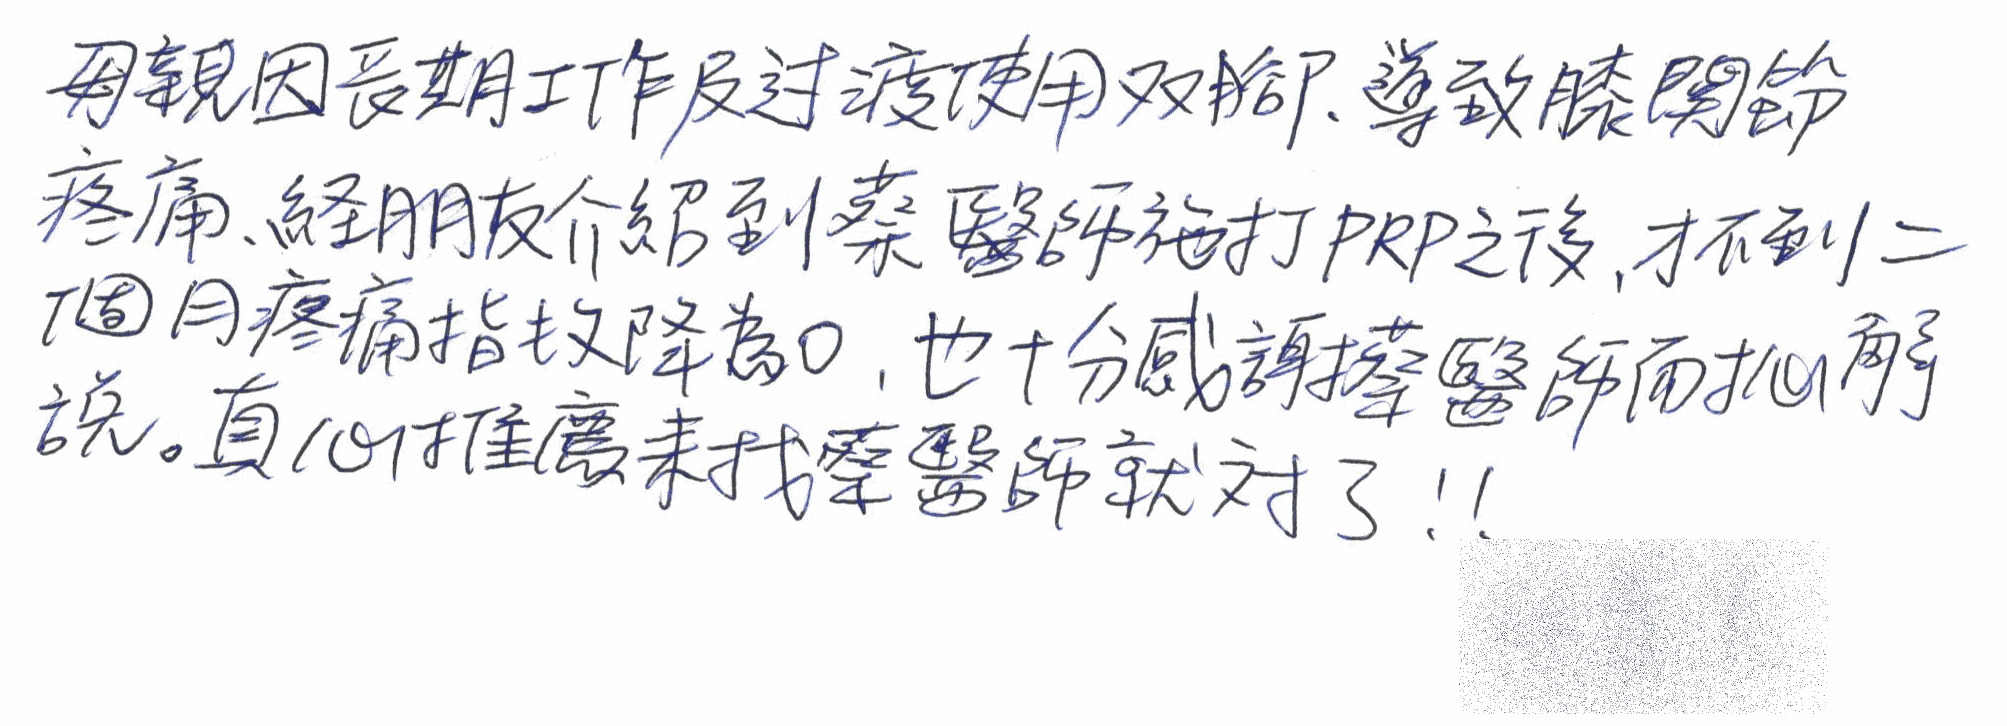 母親因長期工作及过渡使用双腳、導致膝関節
疼痛、経朋友介紹到蔡醫師施打PRP之後,才不到二
個月疼痛指数降為0,也十分感謝蔡醫師耐心解
說。真心推薦来找蔡醫師就对了!!